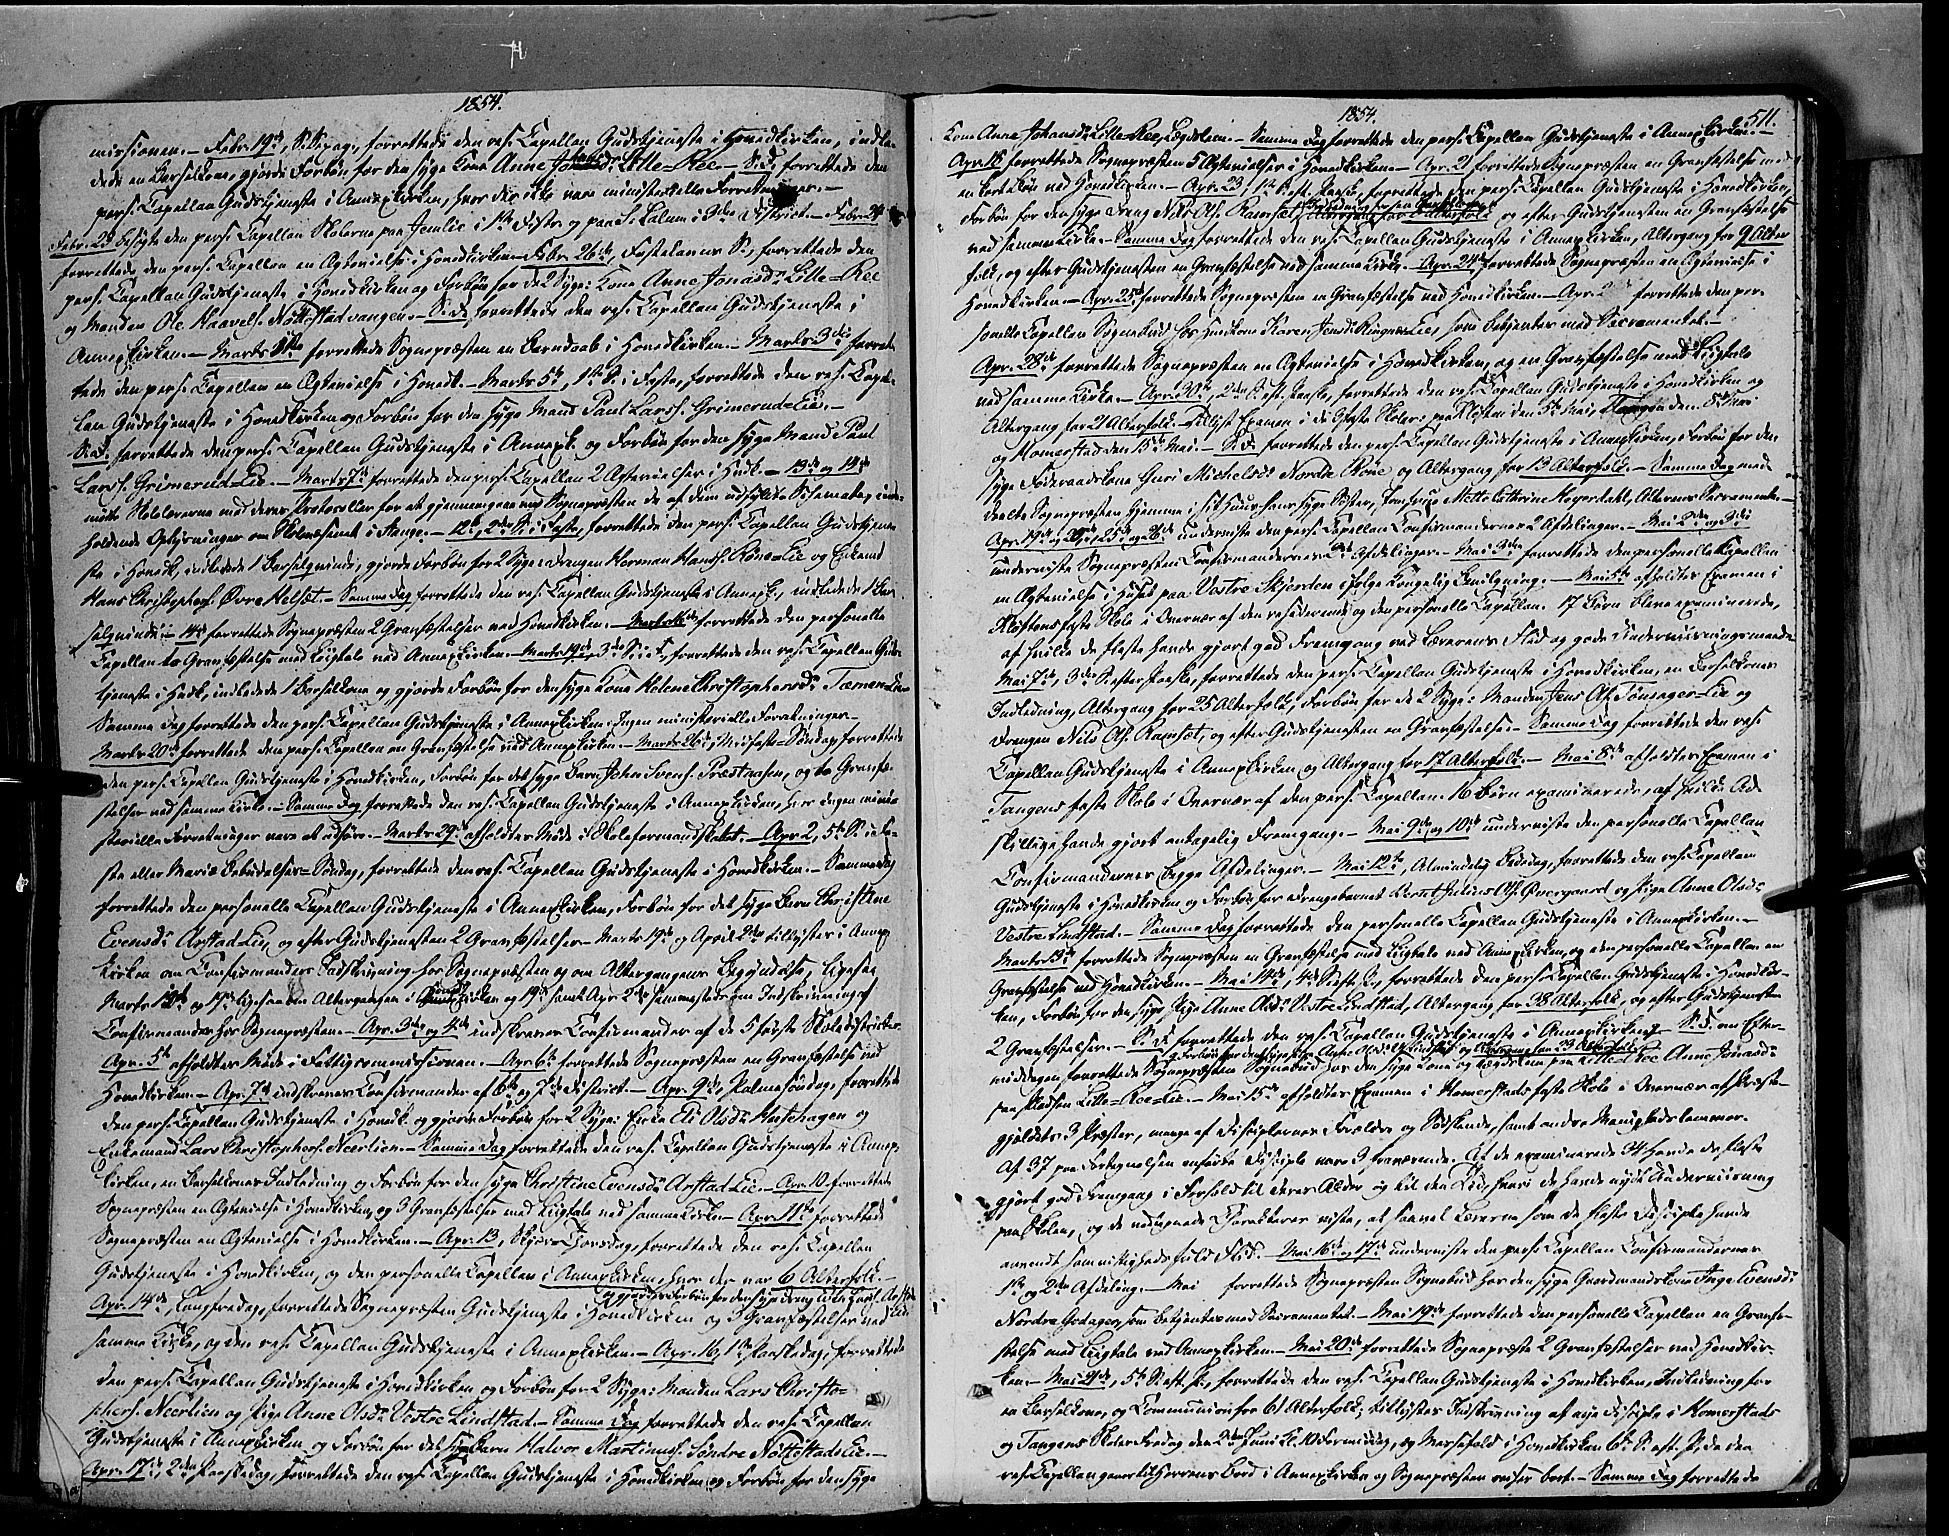 1854.
missionen. Febr. 19de, S. Sexag., forrettede den res. Capellan Gudstjeneste i Hovedkirken, indle-
dede en Barselkone, gjorde Forbøn for den syge Kone Anne Lille-Ree. S. D. forrettede den
pers. Capellan Gudstjeneste i Annexkirken, hvor der ikke vare ministerielle Forretninger.
Febr. 23 besøgte den pers. Capellan Skolerne paa i 1ste Distr. og paa i 3die District. Febr. 24
forrettede den pers. Capellan en Ægtevielse i Hovedkirken. Febr. 26de, Fastelavns S., forrettede den
pers. Capellan Gudstjeneste i Hovedkirken og Forbøn for de 2 Syge: Kone Anne Jonasdr. Lille-Ree
og Manden Ole Haavels. Nøttestadvangen. S. D. forrettede den res. Capellan Gudstjeneste i
Annexkirken. Marts forrettede Sognepræsten en Barndaab i Hovedkirken. Marts 3die forret-
tede den pers. Capellan en Ægtevielse i Hovedk. Marts 5te, 1ste S. i Faste, forrettede den res. Capel-
lan Gudstjeneste i Hovedkirken og Forbøn for den syge Mand Paul Larss. Grimerud-Eie.
S. D. forrettede den pers. Capellan Gudstjeneste i Annexk. og Forbøn for den syge Mand Paul
Larss. Grimerud-Eie. Marts 7de forrettede den pers. Capellan 2 Ægtevielser i Hovedk. 13de og 14de
mødte Skolelærerne med deres Protocoller for at gjennemgaae med Sognepræsten de af dem udfyldte Schemata, inde-
holdende Oplysninger om Skolevæsenet i Stange. 12te, 2den S. i Faste, forrettede den pers. Capellan Gudstjene-
ste i Hovedk., indledede 1 Barselqvinde, gjorde Forbøn for 2 Syge: Drengen Herman Hanss. Røne-Eie og Enkemd.
Hans Christophers. Øvre Helset. Samme Dag forrettede den res. Capellan Gudstjeneste i Annexk., indledede 1 Bar-
selqvinde. 14de forrettede Sognepræsten 2 Gravfæstelser ved Hovedkirken. forrettede den personelle
Capellan to Gravfæstelse med Liigtale ved Annexkirken. Marts 19de, 3die S. i F., forrettede den res. Capellan Guds-
tjeneste i Hvdk., indledede 1 Barselkone og gjorde Forbøn for den syge Kone Helene Christophersdr.
Samme Dag forrettede den pers. Capellan Gudstjeneste i Annexkirken. Ingen ministerielle Forretninger.
Marts 20de forrettede den pers. Capellan en Gravfæstelse ved Annexkirken. Marts 26de, Midfaste-Søndag, forrettede
den pers. Capellan Gudstjeneste i Hovedkirken, Forbøn for det syge Barn John Svens. Præstaasen, og to Gravfæ-
stelser ved samme Kirke. Samme Dag forrettede den res. Capellan Gudstjeneste i Annexkirken, hvor Ingen mini-
sterielle Forretninger vare at udføre. Marts 29de afholdtes Møde i Skoleformandskabet. Apr. 2, 5te S. i Fa-
ste eller Mariæ Bebudelses-Søndag, forrettede den res. Capellan Gudstjeneste i Hovedkirken. Samme Dag
forrettede den personelle Capellan Gudstjeneste i Annexkirken, Forbøn for det syge Barn Christine
Evensdr. Arstad-Eie, og efter Gudstjenesten 2 Gravfæstelser. Marts 19de og April 2den tillystes i Annex
kirken om Confirmanders Indskrivning hos Sognepræsten og om Altergangens Begyndelse, ligesaa
Marts og 19de ligesaa om Altergangen i kirken og 19de samt Apr. 2den sammesteds om Indskrivning af
Confirmander hos Sognepræsten. Apr. 3die og 4de indskreves Confirmander af de 5 første Skoledistricter.
Apr. 5te afholdtes Møde i Fattigcommissionen. Apr. 6te forrettede Sognepræsten en Gravfæstelse ved
Hovedkirken. Apr. 7de indskreves Confirmander af 6te og 7de District. Apr. 9de, Palmesøndag, forrettede
den pers. Capellan Gudstjeneste i Hovedk. og gjorde Forbøn for 2 Syge: Enke Ei Olsdr. Hutehagen og
Enkemand Lars Christophers. Neerlien. Samme Dag forrettede den res. Capellan Gudstjeneste i Annex-
kirken, en Barselkones Indledning og Forbøn for den syge Christine Evensdr. Arstad-Eie. Apr. 10 forrettede
Sognepræsten en Ægtevielse i Hovedkirken, og 3 Gravfæstelser med Liigtale ved samme Kirke. Apr. 11te forrettede
Sognepræsten en Ægtevielse i Hovedkirken. Apr. 13, Skjær-Torsdag, forrettede den res. Capellan
Gudstjeneste i Hovedkirken, og den personelle Capellan i Annexkirken, hvor der var 6 Alterfolk.
og gjorde Forbøn for den syge Dreng
Apr. 14de, Langfredag, forrettede Sognepræsten Gudstjeneste i Hovedkirken og 3 Gravfæstelser ved
samme Kirke, og den res. Capellan Gudstjeneste i Annexkirken. Apr. 16, 1ste Paaskedag, forrettede
den pers. Capellan Gudstjeneste i Hovedkirken og Forbøn for 2 Syge: Manden Lars Christo-
phers. Neerlien og Pige Anne Olsdr. Vestre Lindstad. Samme Dag forrettede den res. Capellan
Gudstjeneste i Annexkirken og Forbøn for det syge Barn Halvor Martinus. Søndre Nøttestad-Eie.
Apr. 17de, 2den Paaskedag, forrettede den res. Capellan Gudstjeneste i Hovedkirken og Forbøn for den syge
1854.
511.
Kone Anne Johansdr. Lille-Ree, Lægdslem. Samme Dag forrettede den pers. Capellan Gudstjeneste i Annexkirken.
Apr. 18 forrettede Sognepræsten 5 Ægtevielser i Hovedkirken. Apr. 21 forrettede Sognepræsten en Gravfæstelse med
en kort Tale ved Hovedkirken. Apr. 23, 1ste S. eft. Paaske, forrettede den pers. Capellan Gudstjeneste i Hovedkirken,
Forbøn for den syge Dreng Nils Ols. Ramset, og efter Gudstjenesten en Gravfæstelse
ved samme Kirke. Samme Dag forrettede den res. Capellan Gudstjeneste i Annexkirken, Altergang for 9 Alter
folk, og efter Gudstjenesten en Gravfæstelse ved samme Kirke. Apr. 24de forrettede Sognepræsten en Ægtevielse i
Hovedkirken. Apr. 25de forrettede Sognepræsten en Gravfæstelse ved Hovedkirken. Apr. 2 forrettede den per-
sonelle Capellan Sognebud hos Huuskone Karen Jensdr. Ringnes-Eie, som betjentes med Sacramentet.
Apr. 28de forrettede Sognepræsten en Ægtevielse i Hovedkirken, og en Gravfæstelse med Liigtale
ved samme Kirke. Apr. 30te, 2den S. eft. Paaske, forrettede den res. Capellan Gudstjeneste i Hovedkirken og
Altergang for 21 Alterfolk. Tillyst Examen i de 3 faste Skoler: paa Kløften den 5te Mai, Tangen den 8de Mai
og Homerstad den 15de Mai. S. D. forrettede den pers. Capellan Gudstjeneste i Annexkirken, Forbøn for den
syge Føderaadskone Guri Michelsdr. Nordre Røne og Altergang for 13 Alterfolk. Samme Dag med-
deelte Sognepræsten hjemme i sit Huus hans syge Søster, Jomfrue Mette Cathrine Heyerdahl, Alterens Sacramente.
Apr. 19de og 20de, 25de og 26de underviste den pers. Capellan Confirmandernes 2 Afdelinger. Mai 2den og 3die
underviste Sognepræsten Confirmandernes 2de Afdelinger. Mai 3die forrettede den personelle Capellan
en Ægtevielse i Huset paa Vestre Skjerden ifølge Kongelig Bevilgning. Mai 5te afholdtes Examen i
Kløftens faste Skole i Overvær af den residerende og den personelle Capellan. 17 Børn bleve examinerede,
af hvilke de fleste havde gjort god Fremgang ved Lærerens Flid og gode Underviisningsmaade.
Mai 7de, 3die S. efter Paaske, forrettede den pers. Capellan Gudstjeneste i Hovedkirken, en Barselkones
Indledning, Altergang for 25 Alterfolk, Forbøn for de 2 Syge: Manden Jens Ols. Tønsager-Eie og
Drengen Nils Ols. Ramset, og efter Gudstjenesten en Gravfæstelse. Samme Dag forrettede den res.
Capellan Gudstjeneste i Annexkirken og Altergang for 17 Alterfolk. Mai 8de afholdtes Examen i
Tangens faste Skole i Overvær af den pers. Capellan. 16 Børn examinerede, af hvilke Ad-
skillige havde gjort antagelig Fremgang. Mai 9de og 10de underviste den personelle Capellan
Confirmandernes begge Afdelinger. Mai 12te, Almindelig Bededag, forrettede den res. Capellan
Gudstjeneste i Hovedkirken og Forbøn for Drengebarnet Bernt Julius Ols. Overgaard og Pige Anne Olsdr.
Vestre Lindstad. Samme Dag forrettede den personelle Capellan Gudstjeneste i Annexkirken.
forrettede Sognepræsten en Gravfæstelse med Liigtale ved Annexkirken, og den personelle Capellan en
Gravfæstelse ved Hovedkirken. Mai 14de, 4de S. eft. P., forrettede den pers. Capellan Gudstjeneste i Hovedkir-
ken, Forbøn for den syge Pige Anne Olsdr. Vestre Lindstad, Altergang for 38 Alterfolk, og efter Gudstjenesten
2 Gravfæstelser. S. D. forrettede den res. Capellan Gudstjeneste i Annexkirken. S. D. om Efter-
og Forbøn for den syge Pige Anne Olsdr. Lindstad og Altergang for 23 Alterfolk.
middagen forrettede Sognepræsten Sognebud hos den syge Kone og Lægdslem paa Lille-Ree Anne Jonasdr.
paa Pladsen Lille-Ree-Eie. Mai 15de afholdtes Examen i Homerstads faste Skole i Overvær af Præste-
gjeldets 3 Præster, mange af Disciplernes Forældre og Sødskende, samt andre Menighedslemmer.
Af 37 paa Fortegnelsen anførte Disciple vare 3 fraværende. Af de examinerede 34 havde de fleste
gjort god Fremgang i Forhold til deres Alder og til den Tid, hvori de havde nydt Underviisning
paa Skolen, og de vedtegnede Characterer viste, at saavel Læreren som de fleste Disciple havde
anvendt samvittighedsfuld Flid. Mai 16de og 17de underviste den pers. Capellan Confirmandernes
1ste og 2den Afdeling. Mai forrettede Sognepræsten Sognebud hos den syge Gaardmandskone Inge Evensdr.
Nordre Godager, som betjentes med Sacramentet. Mai 19de forrettede den personelle Capellan en Gravfæ-
stelse med Liigtale ved Annexkirken. Mai 20de forrettede Sognepræsten 2 Gravfæstelser ved Hovedkir-
ken. Mai 21de, 5te S. eft. P., forrettede den res. Capellan Gudstjeneste i Hovedkirken, Indledning for
en Barselkone, og Communion for 61 Alterfolk; tillystes Indskrivning af nye Disciple i Homerstads
og Tangens Skoler Fredag den 2den Juni Kl. 10 Formiddag, og Messefald i Hovedkirken 6te S. eft. P., da den
res. Capellan gaaer til Herrens Bord i Annexkirken og Sognepræsten reiser bort. Samme Dag forrettede